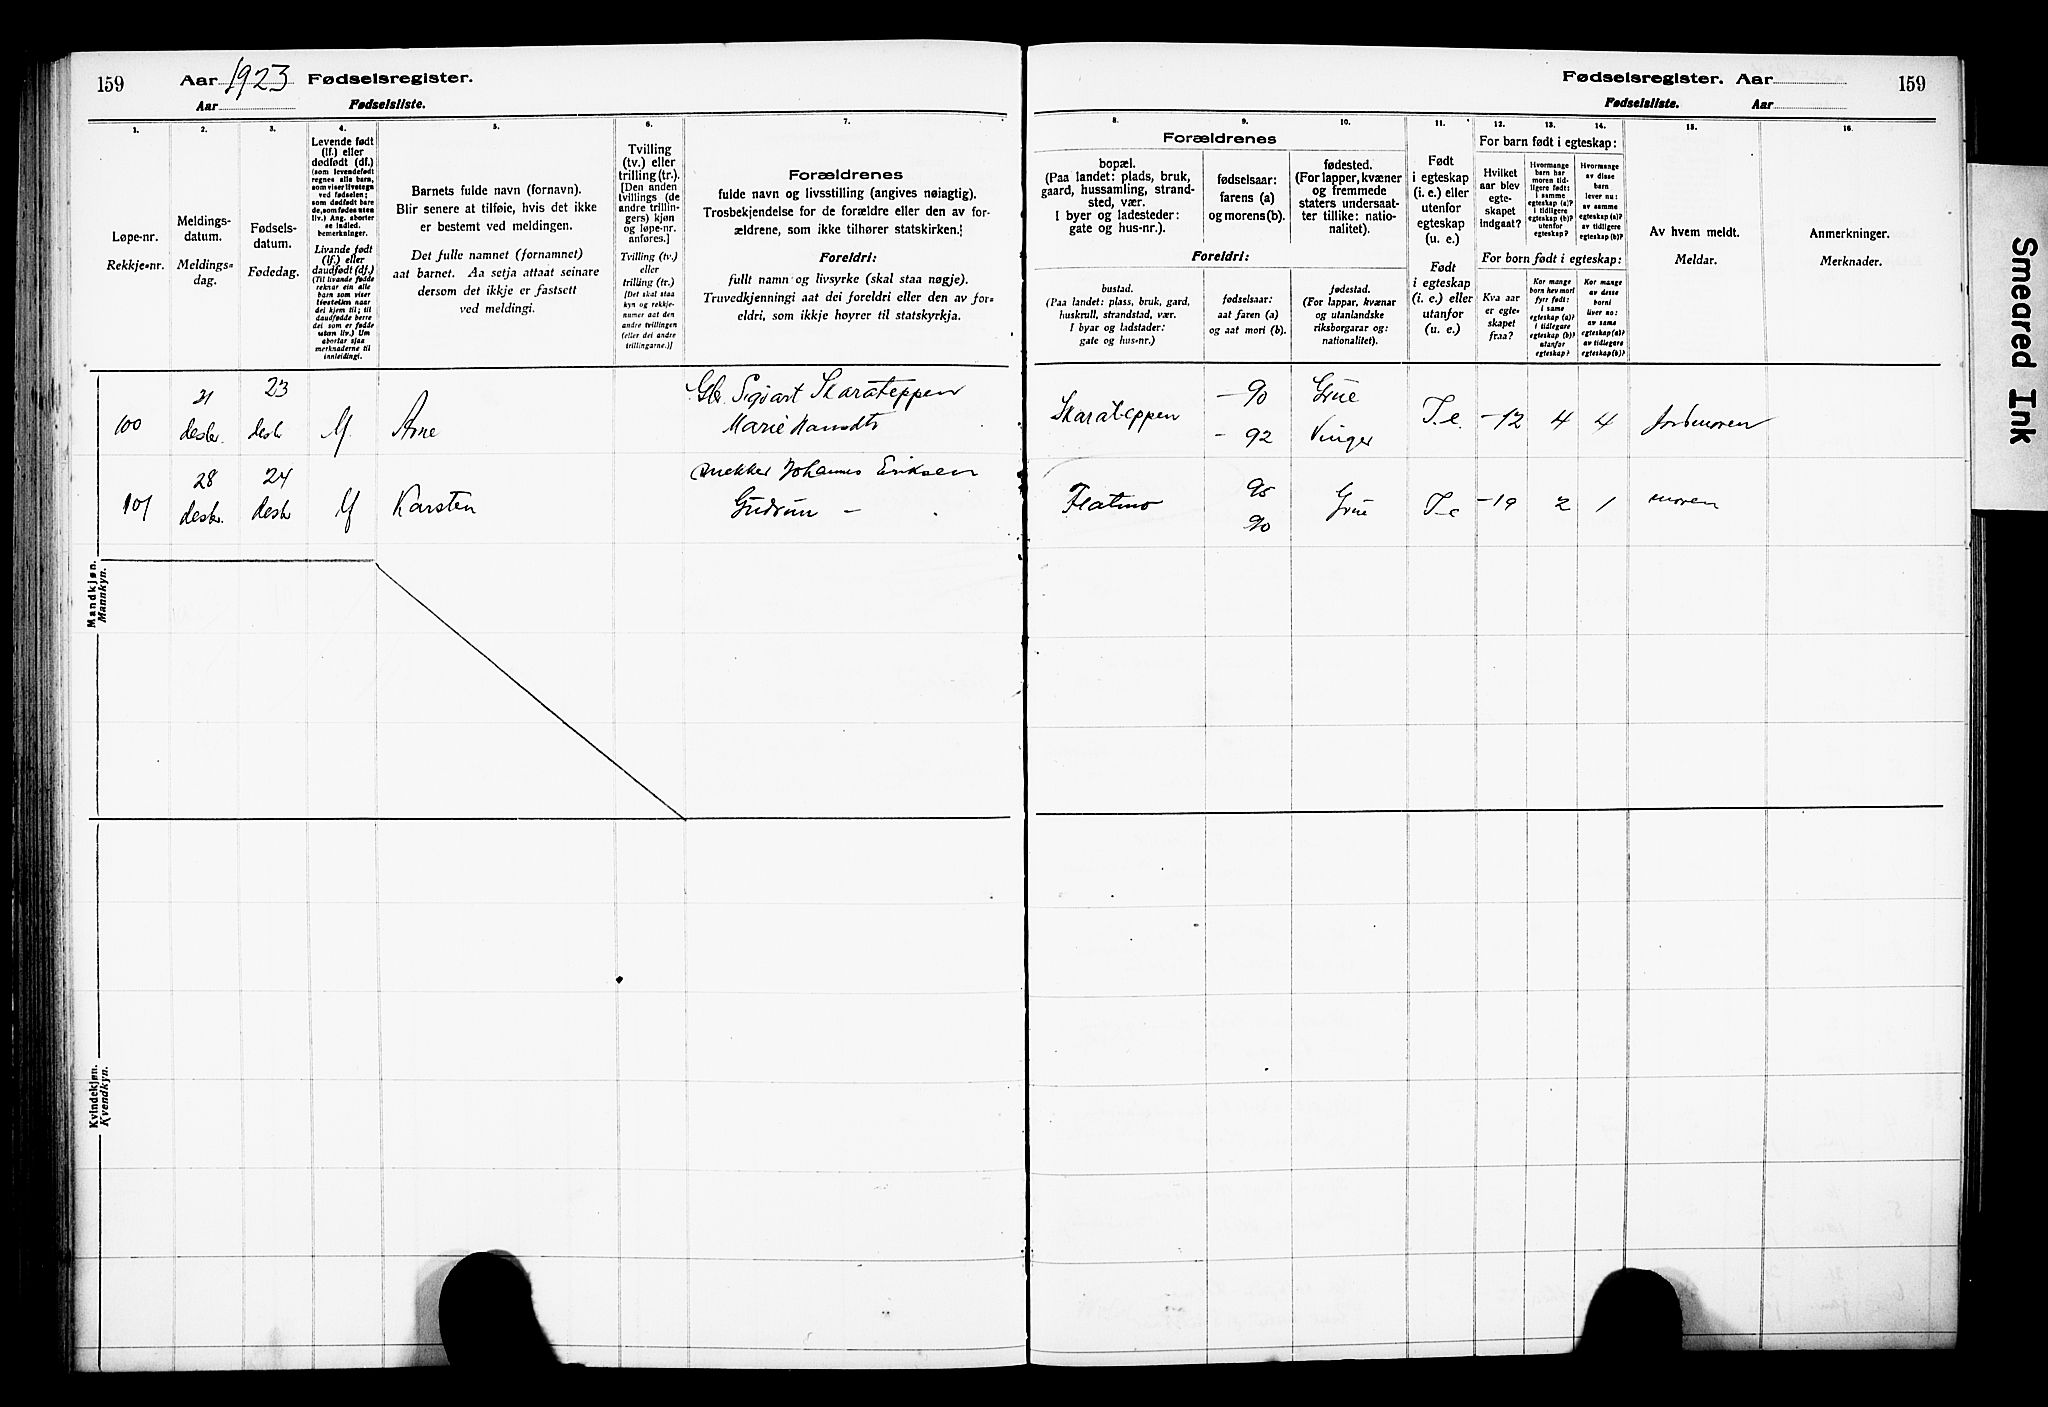 159 Aar 1923 Fødselsregister.
Aar Fødselsliste.
Fødselsregister. Aar 159
Fødselsliste. Aar
1. 2. 3. 4. 5. 6. 7.
Løpe-nr.
Rekkje-nr.
Meldings-
datum.
Meldings-
dag.
Fødsels-
datum.
Fødedag.
Levende født
(lf.) eller
dødfødt (df.)
(som levendefødt
regnes alle barn,
som viser livstegn
ved fødselen;
som dødfødt bare
de, som fødes uten
liv.) Ang. aborter
se indled.
bemerkninger.
Livande født
(lf.) eller
daudfødt (df.)
(Til livande fødde
reknar ein alle
barn som viser
livsteikn naar
dei kjem til; til
daudfødde berre
dei som er fødde
utan liv.) Um
abortar sjaa
merknaderne til
innleidingi.
Barnets fulde navn (fornavn).
Blir senere at tilføie, hvis det ikke
er bestemt ved meldingen.
Det fulle namnet (fornamnet)
aat barnet. Aa setja attaat seinare
dersom det ikkje er fastsett
ved meldingi.
Tvilling
(tv.) eller
trilling (tr.).
[Den anden
tvillings (de
andre trillin-
gers) kjøn
og løpe-nr.
anføres.]
Tvilling (tv.)
eller
trilling (tr.)
[Det skal staa
kyn og rekkje-
numer aat den
andre tvillingen
(eller dei andre
trillingarne.)]
Forældrenes
fulde navn og livsstilling (angives nøiagtig).
Trosbekjendelse for de forældre eller den av for-
ældrene, som ikke tilhører statskirken.
Foreldri:
fullt namn og livsyrke (skal staa nøgje).
Truvedkjenningi aat dei foreldri eller den av for-
eldri, som ikkje høyrer til statskyrkja.
8. 9. 10. 11. 12. 13. 14. 15. 16.
Forældrenes
bopæl.
(Paa landet: plads, bruk,
gaard, hussamling, strand-
sted, vær.
I byer og ladesteder:
gate og hus-nr.).
fødselsaar:
farens (a)
og morens (b).
fødested.
(For lapper, kvæner
og fremmede
staters undersaat-
ter tillike: natio-
nalitet).
Foreldri:
bustad.
(Paa landet: plass, bruk, gard,
huskrull, strandstad, vær.
I byar og ladstader:
gate og hus-nr.)
fødselsaar:
aat faren (a)
og aat mori (b).
fødestad.
(For lappar, kvænar
og utanlandske
riksborgarar og:
nationalitet).
Født
i egteskap
(i. e.) eller
utenfor
egteskap
(u. e.)
Født
i egteskap
(i. e.) eller
utanfor
(u. e.)
For barn født i egteskap:
Hvilket
aar blev
egte-
skapet
indgaat?
Hvormange
barn har
moren tid-
ligere født:
i samme
egteskap (a)?
i tidligere
egteskap (b)?
utenfor
egteskap?
Hvormange
av disse
barn
lever nu:
av samme
egteskap (a)?
av tidligere
egteskap (b)?
For born født i egteskap:
Kva aar
er egte-
skapet
fraa?
Kor mange
born hev mori
fyrr født:
i same
egteskap (a)?
i tidlegare
egteskap (b)?
utanfor
egteskap?
Kor mange
av desse
borni
liver no:
av same
egteskap (a)?
av tidlegare
egteskap (b)?
Av hvem meldt.
Meldar.
Anmerkninger.
Merknader.
Mandkjøn.
Mannkyn.
100 21 desbr. 23 desbr M. Arne Gbr. Sigvart Skarateppen
Marie Hansdtr
Skarateppen -90 Grue I.e. -12 4 4 jordmoren
- 92 Vinger
101 28 desbr. 24 desbr M Karsten Snekker Johannes Eriksen
Gudrun -
Flatmo 95 Grue I-e -19 2 1 moren
90
Kvindekjøn.
Kvendkyn.
Smeared Ink